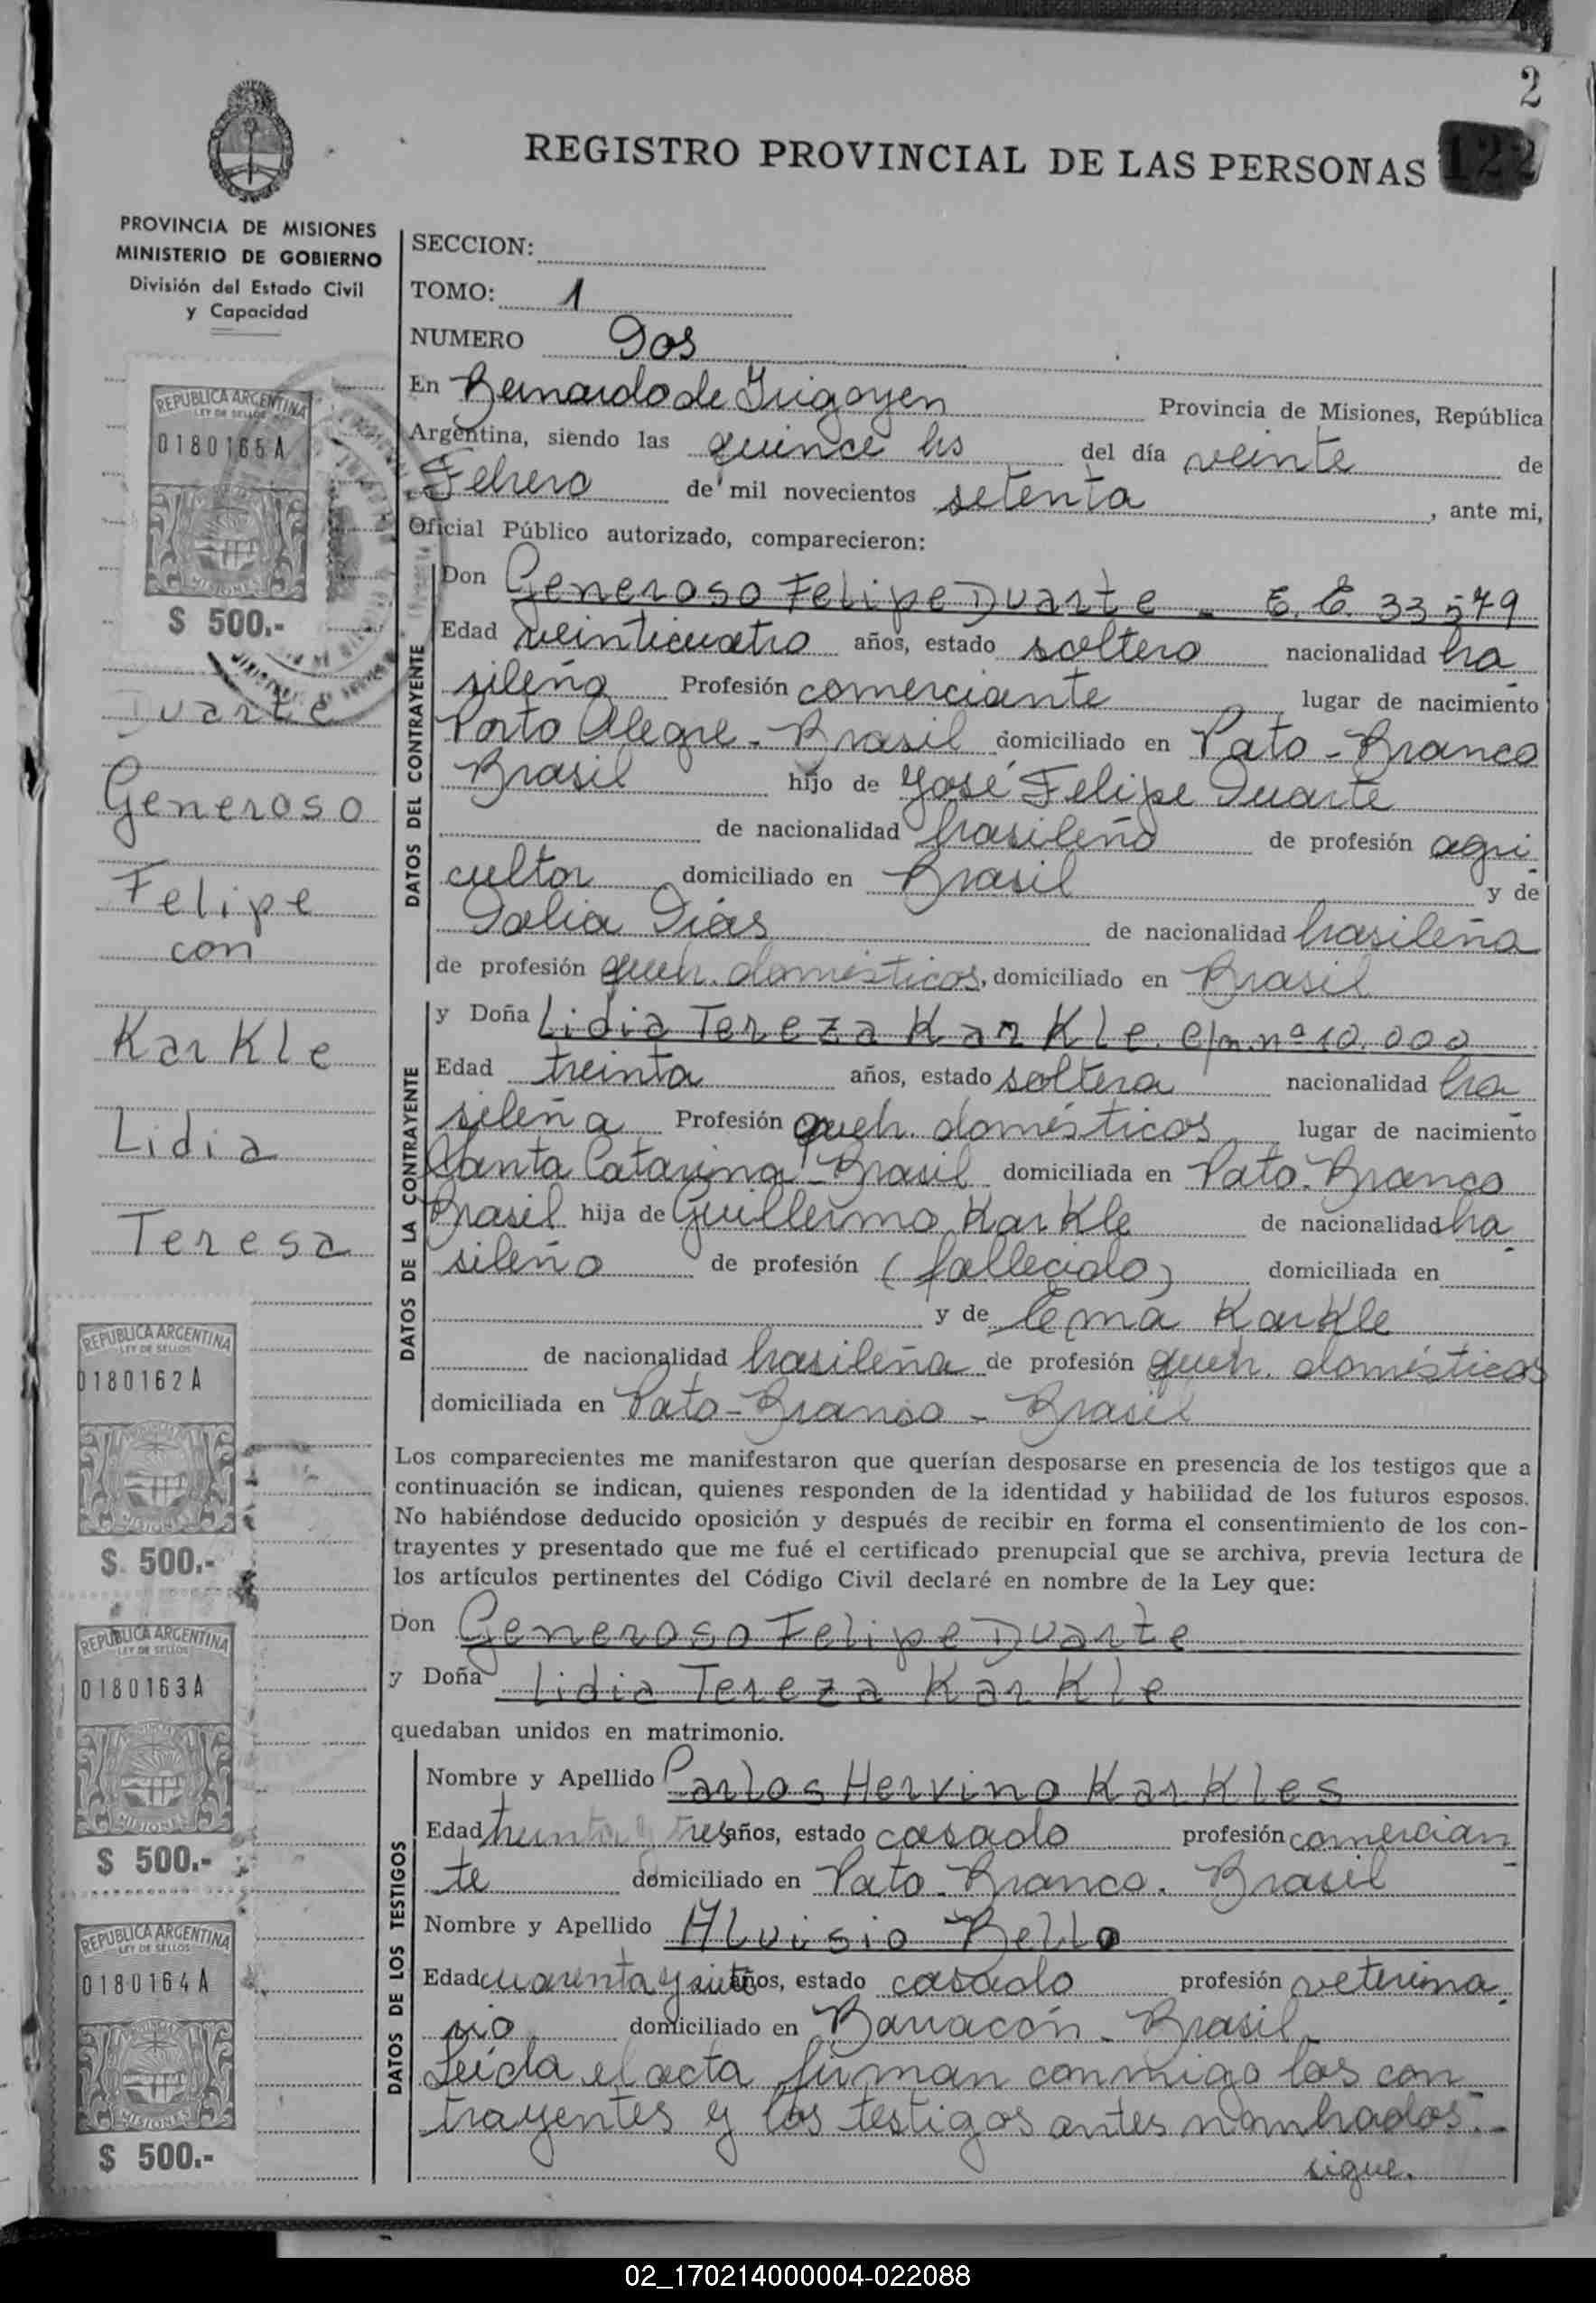 2
REGISTRO PROVINCIAL DE LAS PERSONAS
122
PROVINCIA DE MISIONES
MINISTERIO DE GOBIERNO
División del Estado Civil
y Capacidad
SECCION:
TOMO: 1
NUMERO Dos
En Bernardo de Irigoyen Provincia de Misiones, República
Argentina, siendo las quince hs del día veinte de
Febrero de mil novecientos setenta, ante mi,
Oficial Público autorizado, comparecieron:
DATOS DEL CONTRAYENTE
Don Generoso Felipe Duarte - E. E. 33579
Edad veinticuatro años, estado soltero nacionalidad bra
sileña Profesión comerciante lugar de nacimiento
Porto Alegre - Brasil domiciliado en Pato - Branco
Brasil hijo de José Felipe Duarte
de nacionalidad brasileño de profesión agri
cultor domiciliado en Brasil y de
Dolia Dias de nacionalidad brasileña
de profesión queh. domésticos, domiciliado en Brasil
DATOS DE LA CONTRAYENTE
y Doña Lidia Tereza Karkle. C/m. nº 10.000
Edad treinta años, estado soltera nacionalidad bra
sileña Profesión queh. domésticos lugar de nacimiento
Santa Catarina - Brasil domiciliada en Pato - Branco
Brasil hija de Guillermo Karkle de nacionalidad bra
sileño de profesión (fallecido) domiciliada en
y de Ema Karkle
de nacionalidad brasileña de profesión queh. domésticos
domiciliada en Pato - Branco - Brasil
Los comparecientes me manifestaron que querían desposarse en presencia de los testigos que a
continuación se indican, quienes responden de la identidad y habilidad de los futuros esposos.
No habiéndose deducido oposición y después de recibir en forma el consentimiento de los con-
trayentes y presentado que me fué el certificado prenupcial que se archiva, previa lectura de
los artículos pertinentes del Código Civil declaré en nombre de la Ley que:
Don Generoso Felipe Duarte
y Doña Lidia Tereza Karkle
quedaban unidos en matrimonio.
DATOS DE LOS TESTIGOS
Nombre y Apellido Carlos Hervino Karkles
Edad treinta y tres años, estado casado profesión comercian
te domiciliado en Pato - Branco. Brasil
Nombre y Apellido Aluisio Bello
Edad cuarenta y siete años, estado casado profesión veterina
rio domiciliado en Barracón - Brasil
Leída el acta firman conmigo los con
trayentes y los testigos antes nombrados.-
sigue.
REPUBLICA ARGENTINA
LEY DE SELLOS
0180165A
MISIONES
$ 500.-
Duarte
Generoso
Felipe
con
Karkle
Lidia
Teresa
REPUBLICA ARGENTINA
LEY DE SELLOS
0180162A
MISIONES
$ 500.-
REPUBLICA ARGENTINA
LEY DE SELLOS
0180163A
MISIONES
$ 500.-
REPUBLICA ARGENTINA
LEY DE SELLOS
0180164A
MISIONES
$ 500.-
02_170214000004-022088